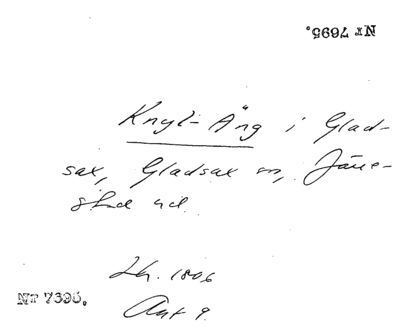 Nr 7695.
Knyl-Äng i Glad-
sax, Gladsax sn, Järre-
stad hd.
Lh. 1806
Akt 9.
Nr 7395.